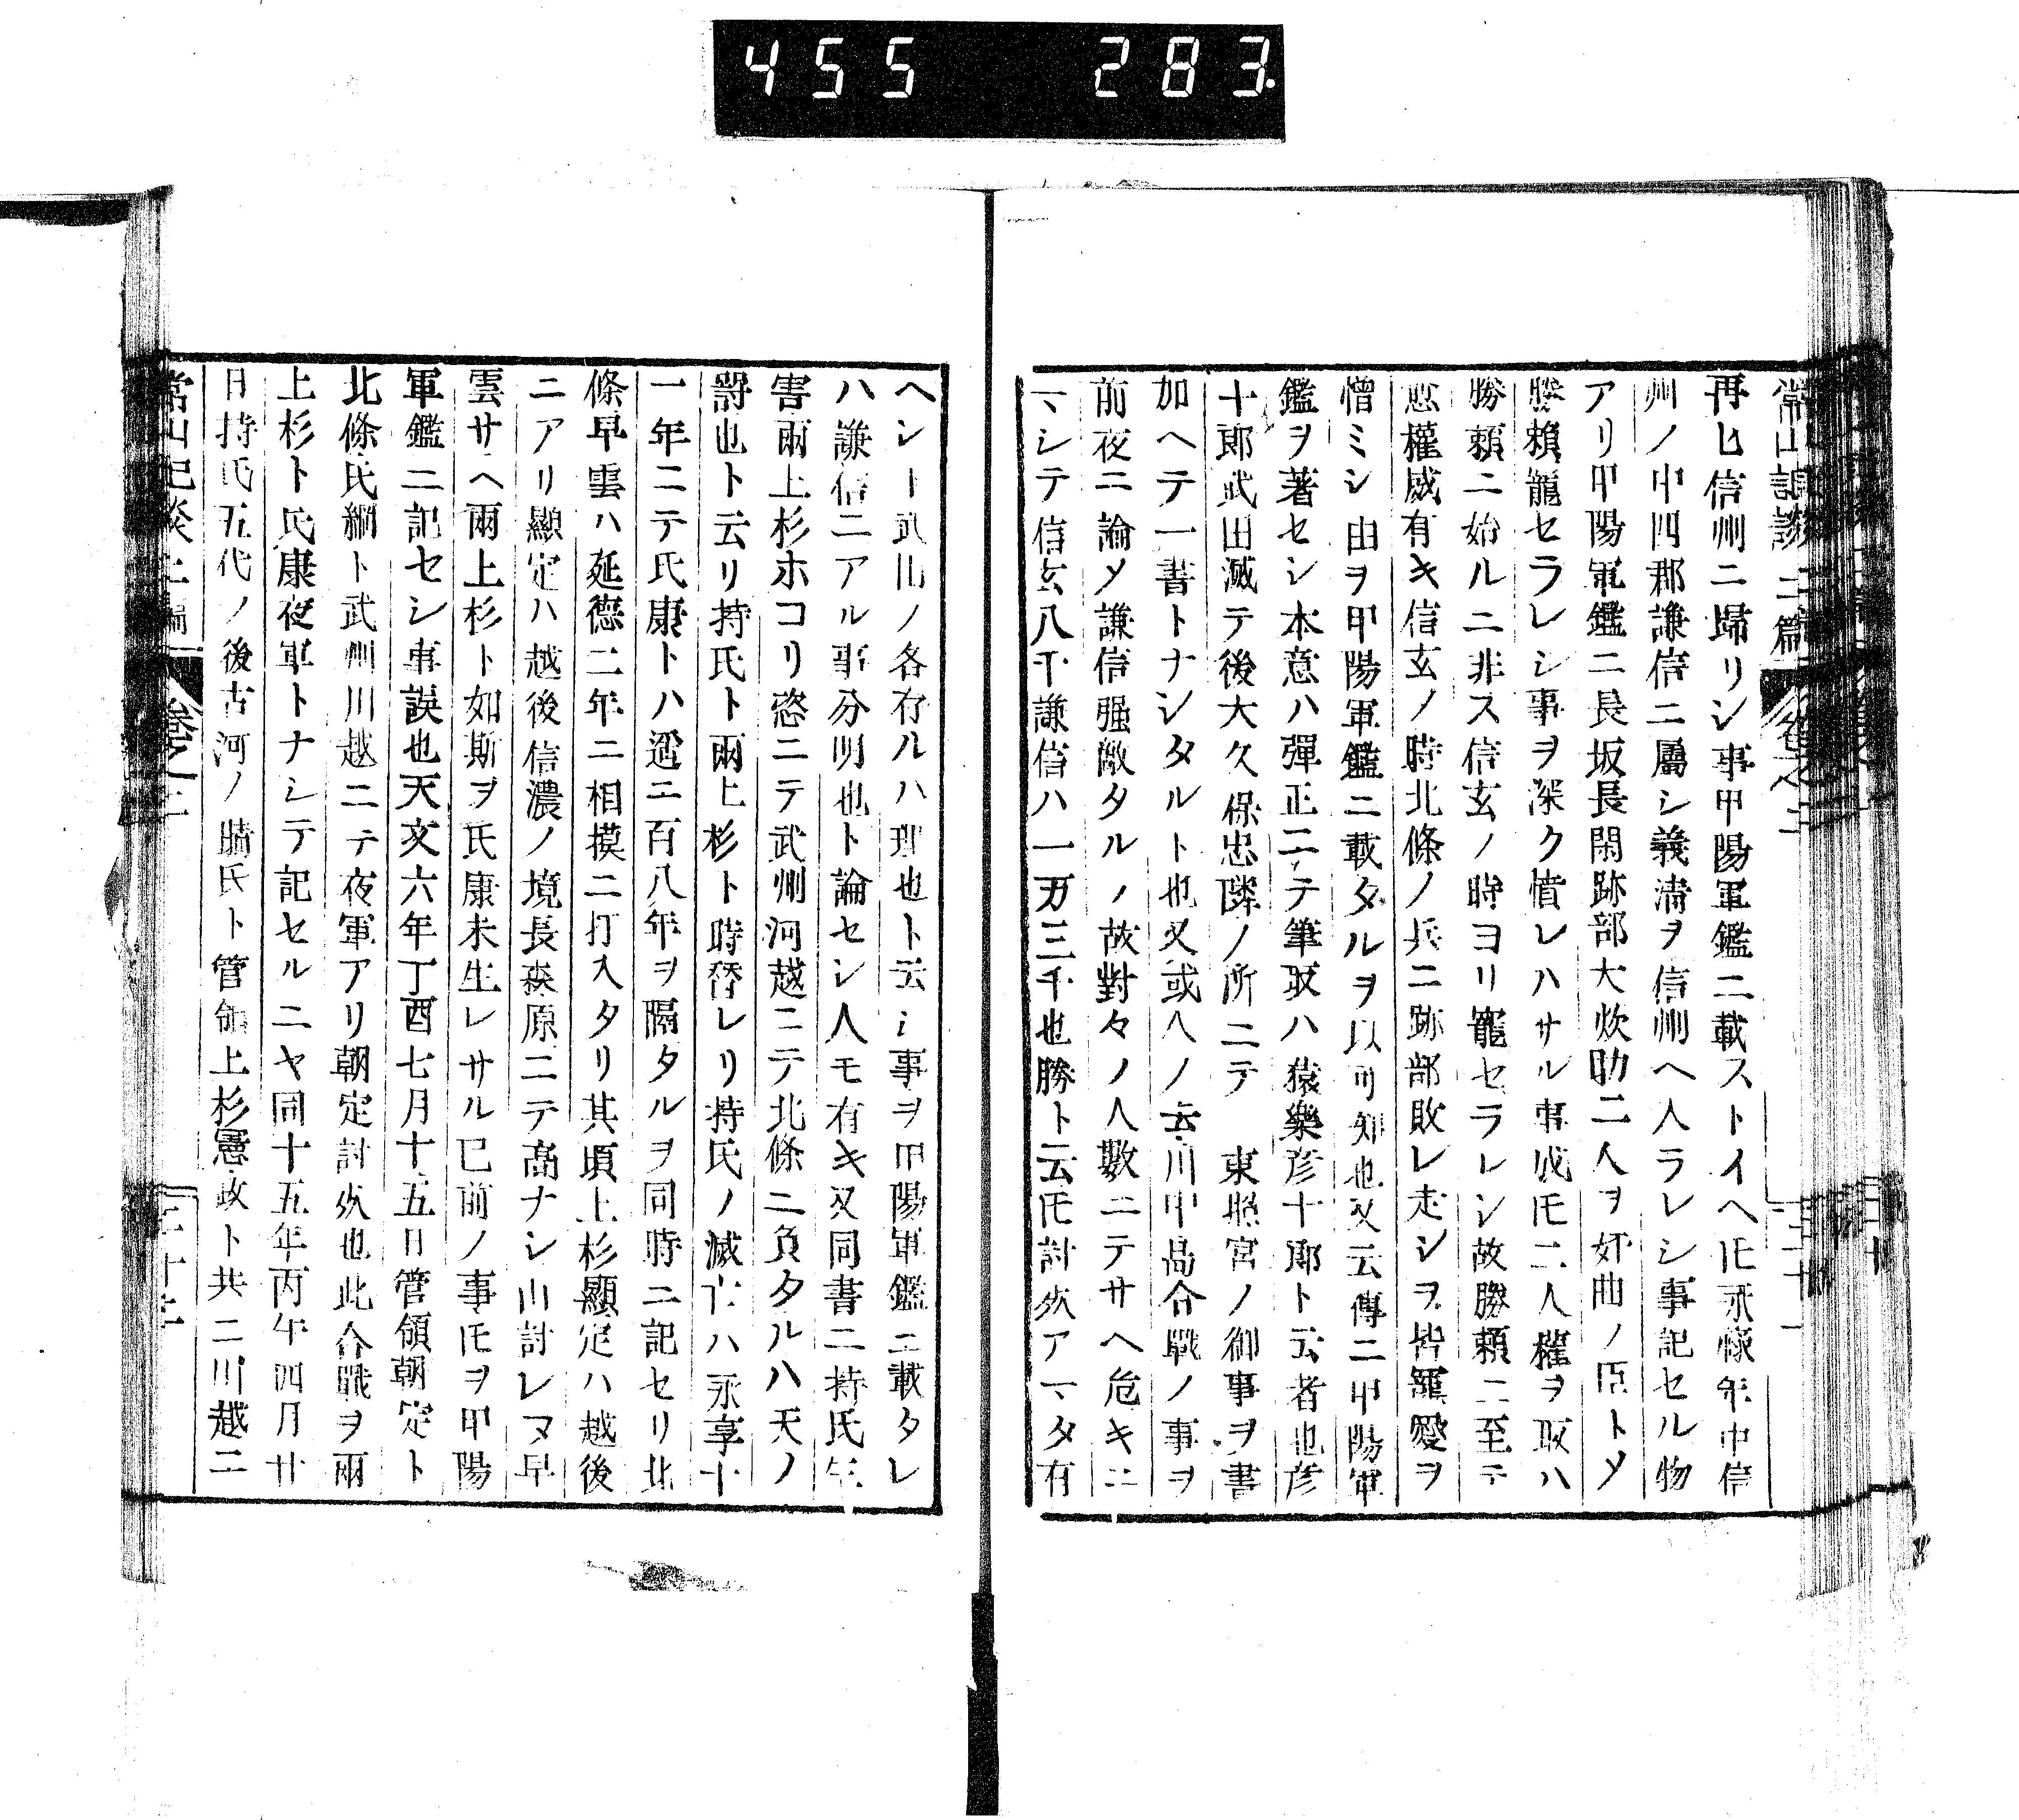 455 283
常山記談 二篇 卷之二
再ヒ信州ニ歸リシ事甲陽軍鑑ニ載ストイヘ𪜈永禄年中信
州ノ中四郡謙信ニ屬シ義淸ヲ信州ヘ入ラレシ事記セル物
アリ甲陽軍鑑ニ長坂長閑跡部大炊助二人ヲ奸曲ノ臣トメ
勝賴寵セラレシ事ヲ深ク憤レハサル事成𪜈二人權ヲ取ハ
勝賴ニ始ルニ非ス信玄ノ時ヨリ寵セラレシ故勝賴ニ至テ
愈權威有キ信玄ノ時北條ノ兵ニ跡部敗レ走シヲ皆寵愛ヲ
憎ミシ由ヲ甲陽軍鑑ニ載タルヲ以可知也又云傳ニ甲陽軍
鑑ヲ著セシ本意ハ彈正ニテ筆取ハ猿樂彦十郎ト云者也彦
十郎武田滅テ後大久保忠隣ノ所ニテ 東照宮ノ御事ヲ書
加ヘテ一書トナシタルト也又或人ノ云川中嶌合戰ノ事ヲ
前夜ニ論メ謙信强敵タルノ故對々ノ人數ニテサヘ危キニ
マシテ信玄八千謙信ハ一万三千也勝ト云𪜈討死アマタ有
ヘシト武山ノ各存ルハ理也ト云シ事ヲ甲陽軍鑑ニ載タレ
ハ謙信ニアル事分明也ト論セシ人モ有キ又同書ニ持氏生
害兩上杉ホコリ恣ニテ武州河越ニテ北條ニ負タルハ天ノ
罸也ト云リ持氏ト兩上杉ト時替レリ持氏ノ滅亡ハ永享十
一年ニテ氏康トハ遥ニ百八年ヲ隔タルヲ同時ニ記セリ北
條早雲ハ延德二年ニ相摸ニ打入タリ其頃上杉顯定ハ越後
ニアリ顯定ハ越後信濃ノ境長森原ニテ髙ナシ山討レヌ早
雲サヘ兩上杉ト如斯ヲ氏康未生レサル已前ノ事𪜈ヲ甲陽
軍鑑ニ記セシ事誤也天文六年丁酉七月十五日管領朝定ト
北條氏綱ト武州川越ニテ夜軍アリ朝定討死也此合戰ヲ兩
上杉ト氏康夜軍トナシテ記セルニヤ同十五年丙午四月廿
日持氏五代ノ後古河ノ晴氏ト管領上杉憲政ト共ニ川越ニ
常山記談 二編 卷之二